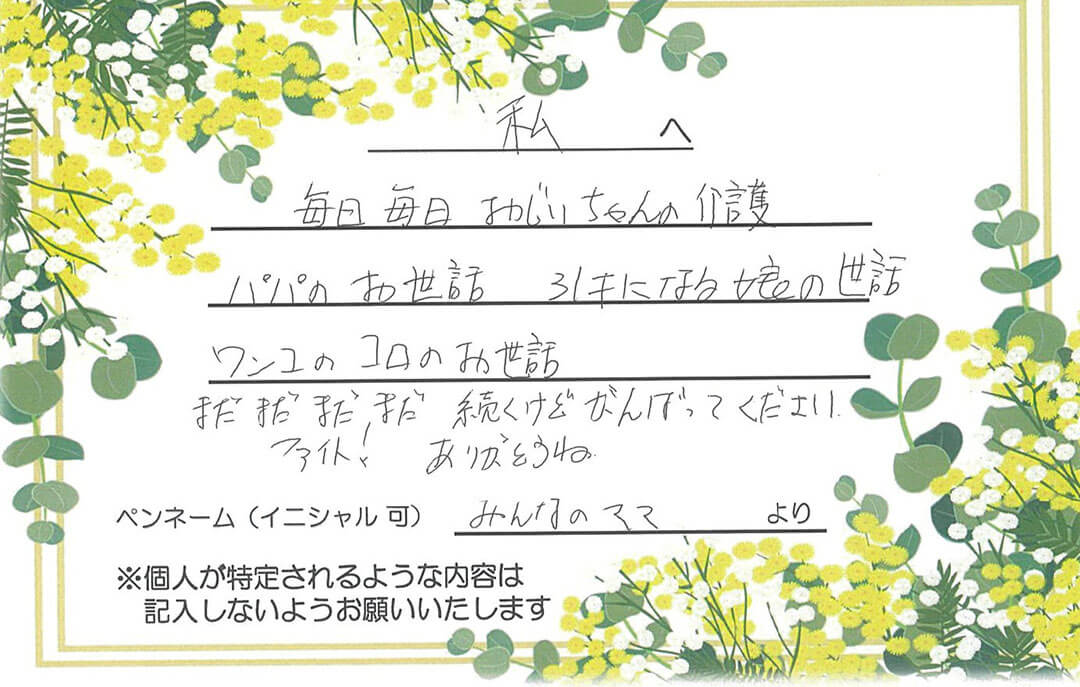 私 へ
毎日毎日 おじいちゃんの介護
パパのお世話 引キになる娘の世話
ワンコのコロのお世話
まだまだまだまだ 続くけどがんばってください
ファイト! ありがとうね
ペンネーム(イニシャル 可) みんなのママ より
※個人が特定されるような内容は
記入しないようお願いいたします